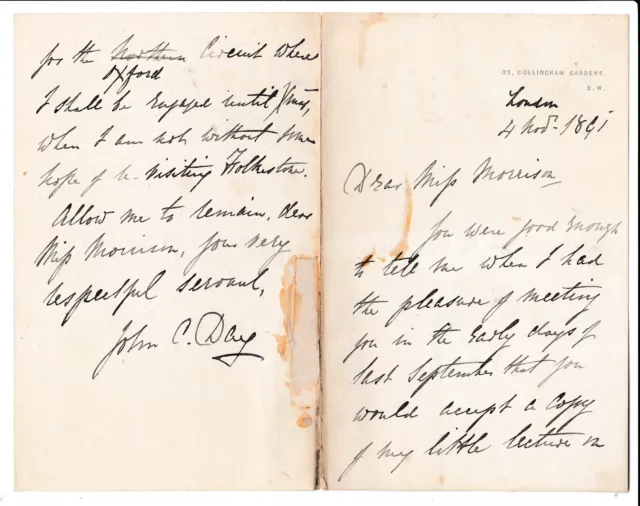 25, COLLINGHAM GARDENS,
S. W.
London
4 Nov. 1891
Dear Miss Morrison
You were good enough
to tell me when I had
the pleasure of meeting
you in the early days of
last September that you
would accept a copy
of my little lecture on
for the Northern Circuit where
Oxford
I shall be engaged until
when I am not without some
hope of re-visiting Folkestone.
Allow me to remain, dear
Miss Morrison, your very
respectful servant,
John C. Day